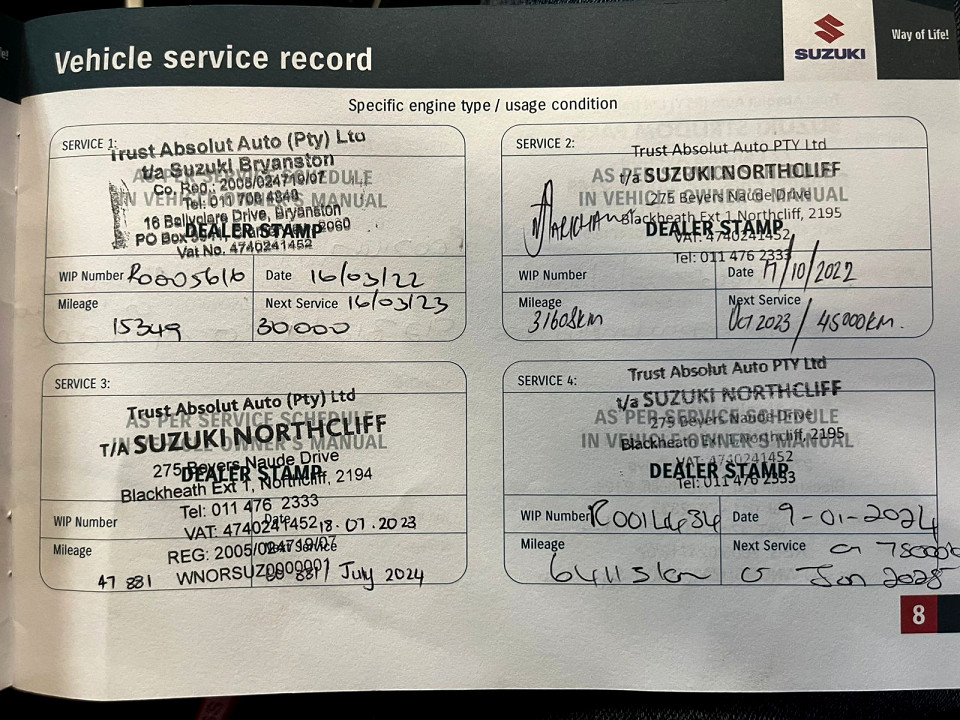 Vehicle service record
SUZUKI
Way of Life!
Specific engine type / usage condition
SERVICE 1:
Trust Absolut Auto (Pty) Ltd
t/a Suzuki Bryanston
AS PER SERVICE SCHEDULE
Co. Reg.: 2005/024719/07
IN VEHICLE OWNER'S MANUAL
Tel: 011 708 4340
16 Ballyclare Drive, Bryanston
PO Box 2060
DEALER STAMP
Vat No. 4740241452
WIP Number Date 16/03/22
Mileage Next Service 16/03/23
15349 30000
SERVICE 2:
Trust Absolut Auto PTY Ltd
t/a SUZUKI NORTHCLIFF
AS PER SERVICE SCHEDULE
275 Beyers Naude Drive
IN VEHICLE OWNER'S MANUAL
Blackheath Ext 1 Northcliff, 2195
DEALER STAMP
VAT: 4740241452
Tel: 011 476 2333
WIP Number Date 17/10/2022
Mileage Next Service
31608km Oct 2023 / 45000km.
SERVICE 3:
Trust Absolut Auto (Pty) Ltd
AS PER SERVICE SCHEDULE
T/A SUZUKI NORTHCLIFF
IN VEHICLE OWNER'S MANUAL
275 Beyers Naude Drive
DEALER STAMP
Blackheath Ext 1, Northcliff, 2194
Tel: 011 476 2333
WIP Number Date
VAT: 4740241452 18.07.2023
Mileage Next Service
REG: 2005/024719/07
WNORSUZ0000001
47 881 July 2024
SERVICE 4:
Trust Absolut Auto PTY Ltd
t/a SUZUKI NORTHCLIFF
AS PER SERVICE SCHEDULE
275 Beyers Naude Drive
IN VEHICLE OWNER'S MANUAL
Blackheath Ext 1 Northcliff, 2195
VAT: 4740241452
DEALER STAMP
Tel: 011 476 2333
WIP Number R0014434 Date 9-01-2024
Mileage Next Service
64113km Jan 2025
8